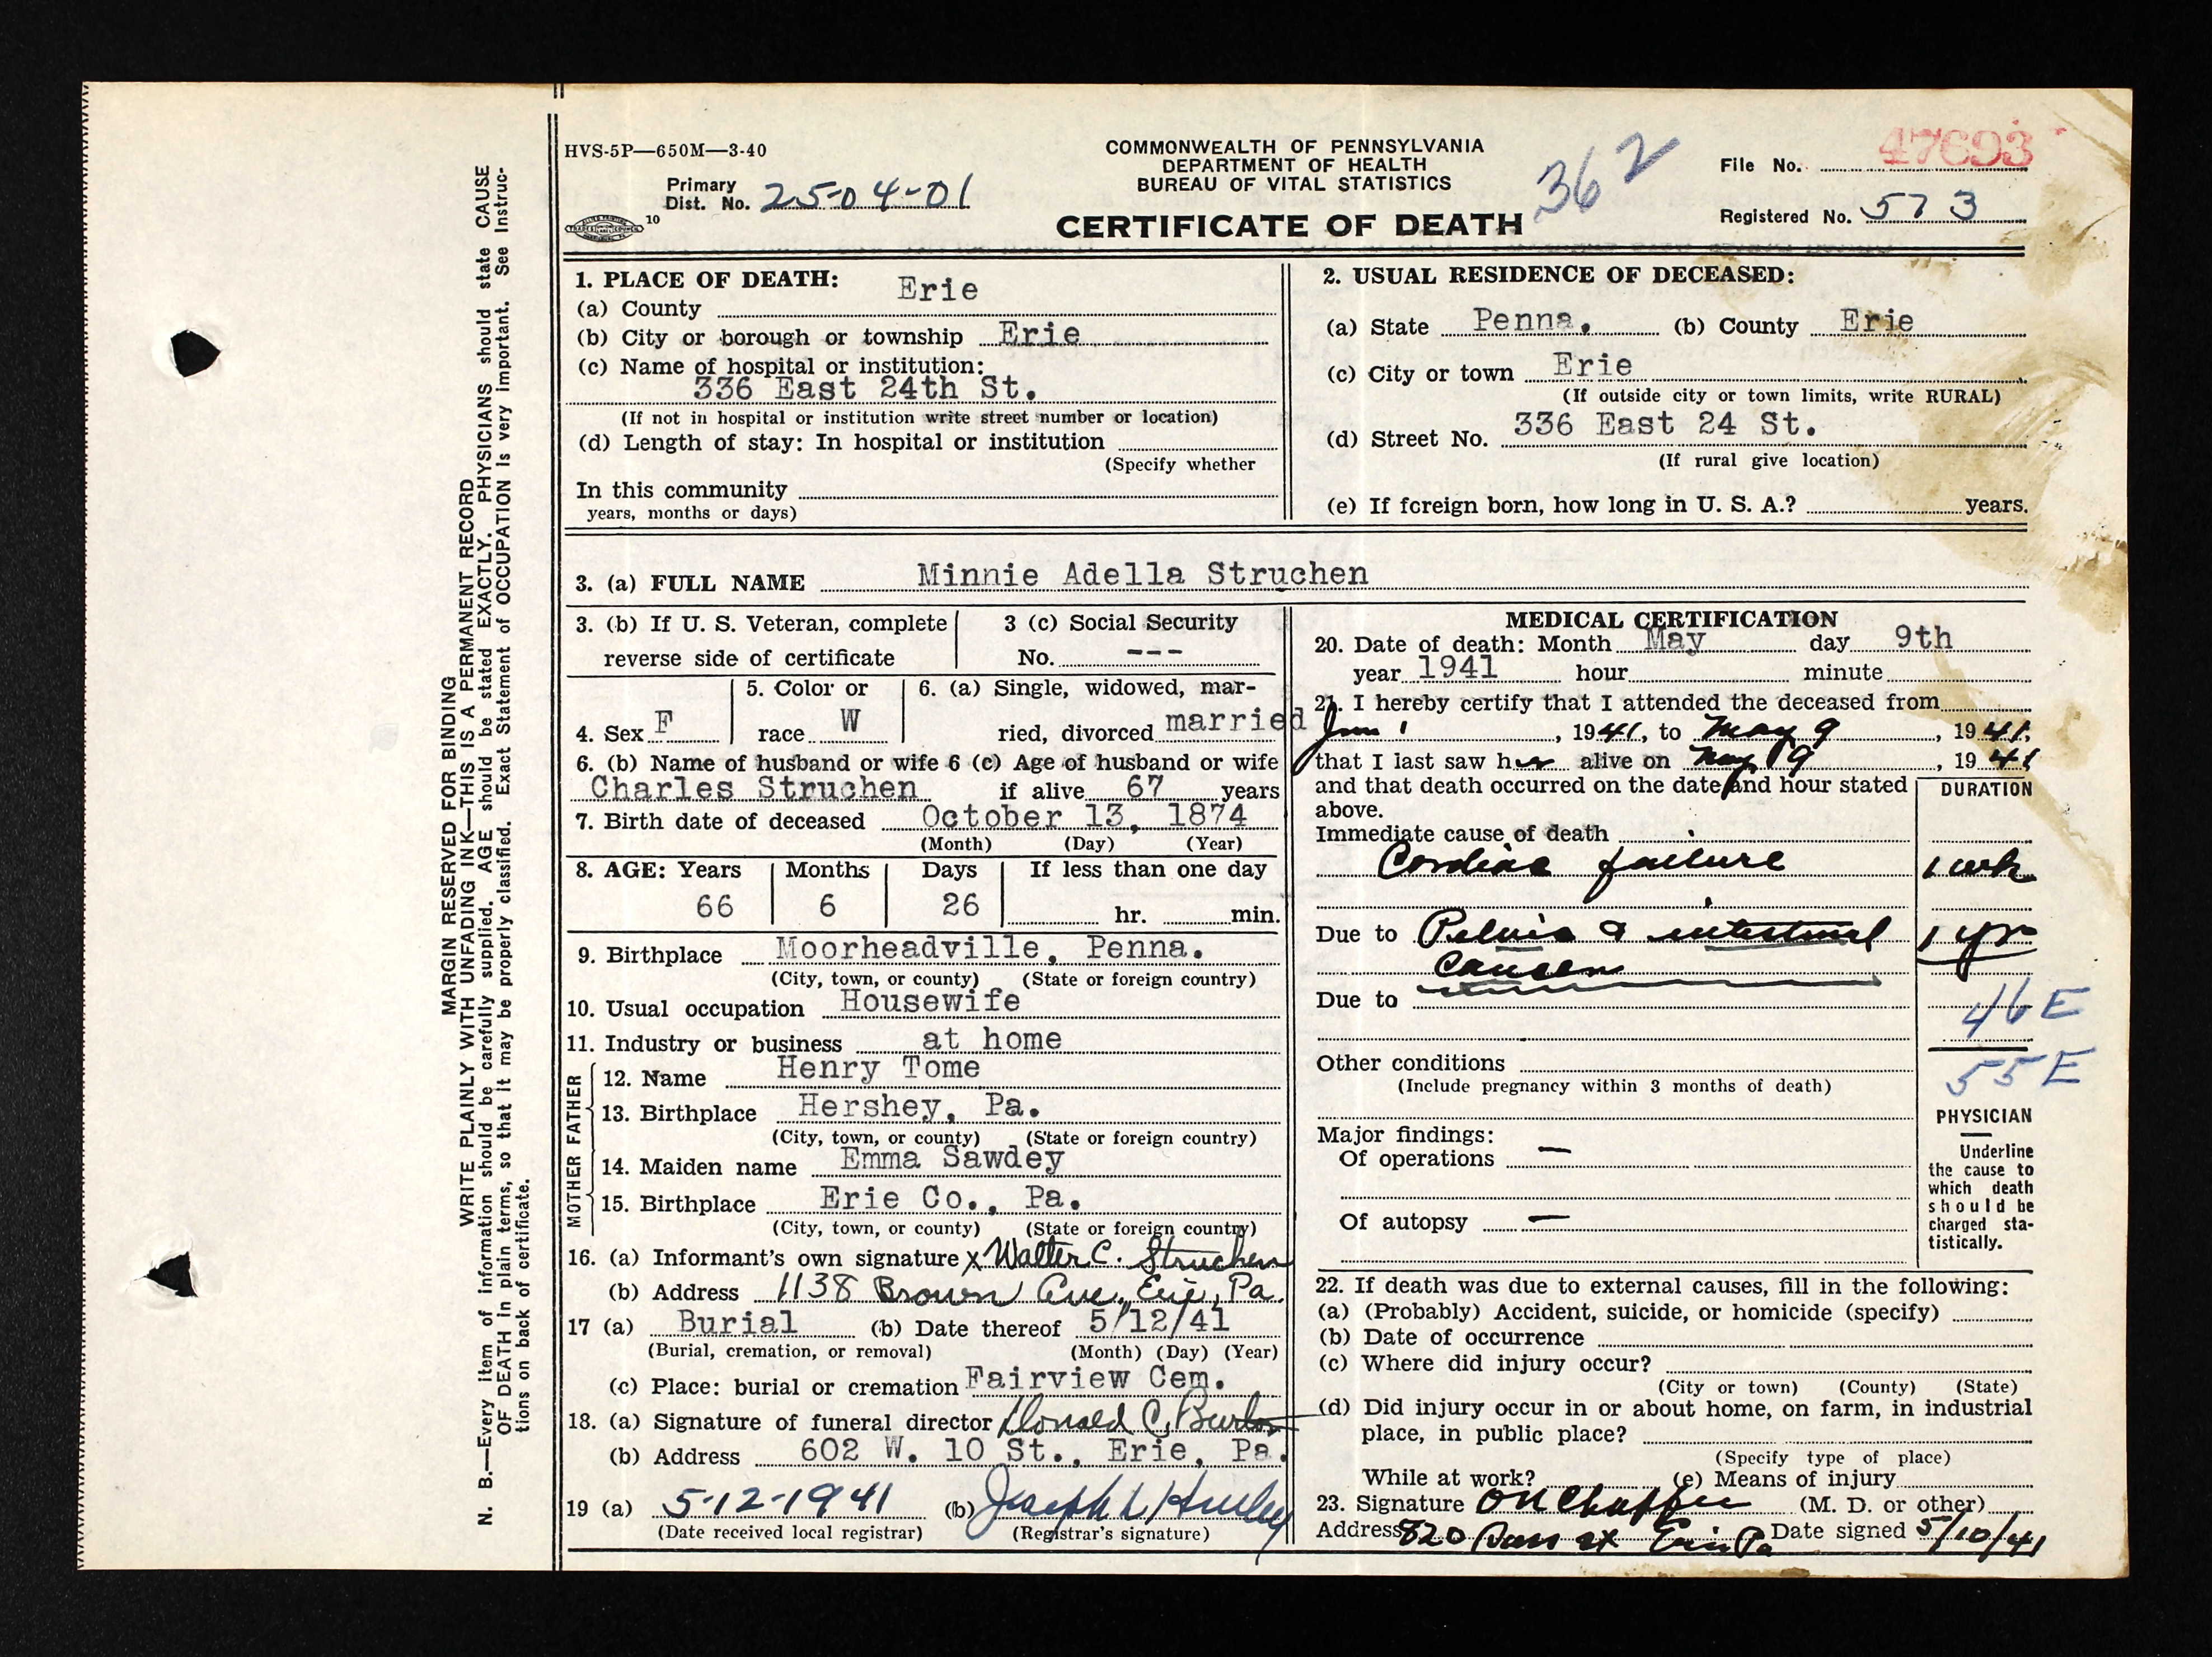 HVS-5P—650M—3-40
COMMONWEALTH OF PENNSYLVANIA
DEPARTMENT OF HEALTH
BUREAU OF VITAL STATISTICS
CERTIFICATE OF DEATH
362
File No. 47693
Primary
Dist. No. 25-04-01
10
Registered No. 573
1. PLACE OF DEATH:
(a) County Erie
(b) City or borough or township Erie
(c) Name of hospital or institution:
336 East 24th St.
(If not in hospital or institution write street number or location)
(d) Length of stay: In hospital or institution
(Specify whether
In this community
years, months or days)
2. USUAL RESIDENCE OF DECEASED:
(a) State Penna. (b) County Erie
(c) City or town Erie
(If outside city or town limits, write RURAL)
(d) Street No. 336 East 24 St.
(If rural give location)
(e) If foreign born, how long in U. S. A.? years.
3. (a) FULL NAME Minnie Adella Struchen
3. (b) If U. S. Veteran, complete
reverse side of certificate
3 (c) Social Security
No. ---
4. Sex F
5. Color or
race W
6. (a) Single, widowed, mar-
ried, divorced married
6. (b) Name of husband or wife 6 (c) Age of husband or wife
Charles Struchen if alive 67 years
7. Birth date of deceased October 13, 1874
(Month) (Day) (Year)
8. AGE: Years Months Days If less than one day
66 6 26 hr. min.
9. Birthplace Moorheadville, Penna.
(City, town, or county) (State or foreign country)
10. Usual occupation Housewife
11. Industry or business at home
FATHER
12. Name Henry Tome
13. Birthplace Hershey, Pa.
(City, town, or county) (State or foreign country)
MOTHER
14. Maiden name Emma Sawdey
15. Birthplace Erie Co., Pa.
(City, town, or county) (State or foreign country)
16. (a) Informant's own signature x Walter C. Struchen
(b) Address 1138 Brown Ave, Erie, Pa.
17 (a) Burial (b) Date thereof 5/12/41
(Burial, cremation, or removal) (Month) (Day) (Year)
(c) Place: burial or cremation Fairview Cem.
18. (a) Signature of funeral director Donald C. Burton
(b) Address 602 W. 10 St., Erie, Pa.
19 (a) 5-12-1941 (b) Joseph
(Date received local registrar) (Registrar's signature)
MEDICAL CERTIFICATION
20. Date of death: Month May day 9th
year 1941 hour minute
21. I hereby certify that I attended the deceased from
1, 1941, to May 9, 1941,
that I last saw her alive on May 9, 1941
and that death occurred on the date and hour stated
above.
DURATION
Immediate cause of death
Cardiac failure 1 wk
Due to Pelvic & intestinal 1 yr
cancer
Due to
46E
55E
Other conditions
(Include pregnancy within 3 months of death)
Major findings:
Of operations —
Of autopsy —
PHYSICIAN
Underline
the cause to
which death
should be
charged sta-
tistically.
22. If death was due to external causes, fill in the following:
(a) (Probably) Accident, suicide, or homicide (specify)
(b) Date of occurrence
(c) Where did injury occur?
(City or town) (County) (State)
(d) Did injury occur in or about home, on farm, in industrial
place, in public place?
(Specify type of place)
While at work? (e) Means of injury
23. Signature (M. D. or other)
Address 820 Erie Pa Date signed 5/10/41
MARGIN RESERVED FOR BINDING
WRITE PLAINLY WITH UNFADING INK—THIS IS A PERMANENT RECORD
N. B.—Every item of information should be carefully supplied. AGE should be stated EXACTLY. PHYSICIANS should state CAUSE
OF DEATH in plain terms, so that it may be properly classified. Exact Statement of OCCUPATION is very important. See Instruc-
tions on back of certificate.